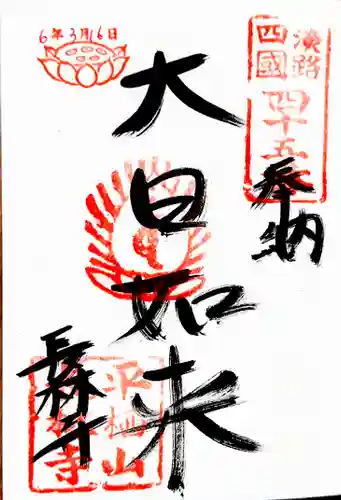 奉納
淡路
四國
四十五
6年3月16日
大日如来
平松山
長林寺